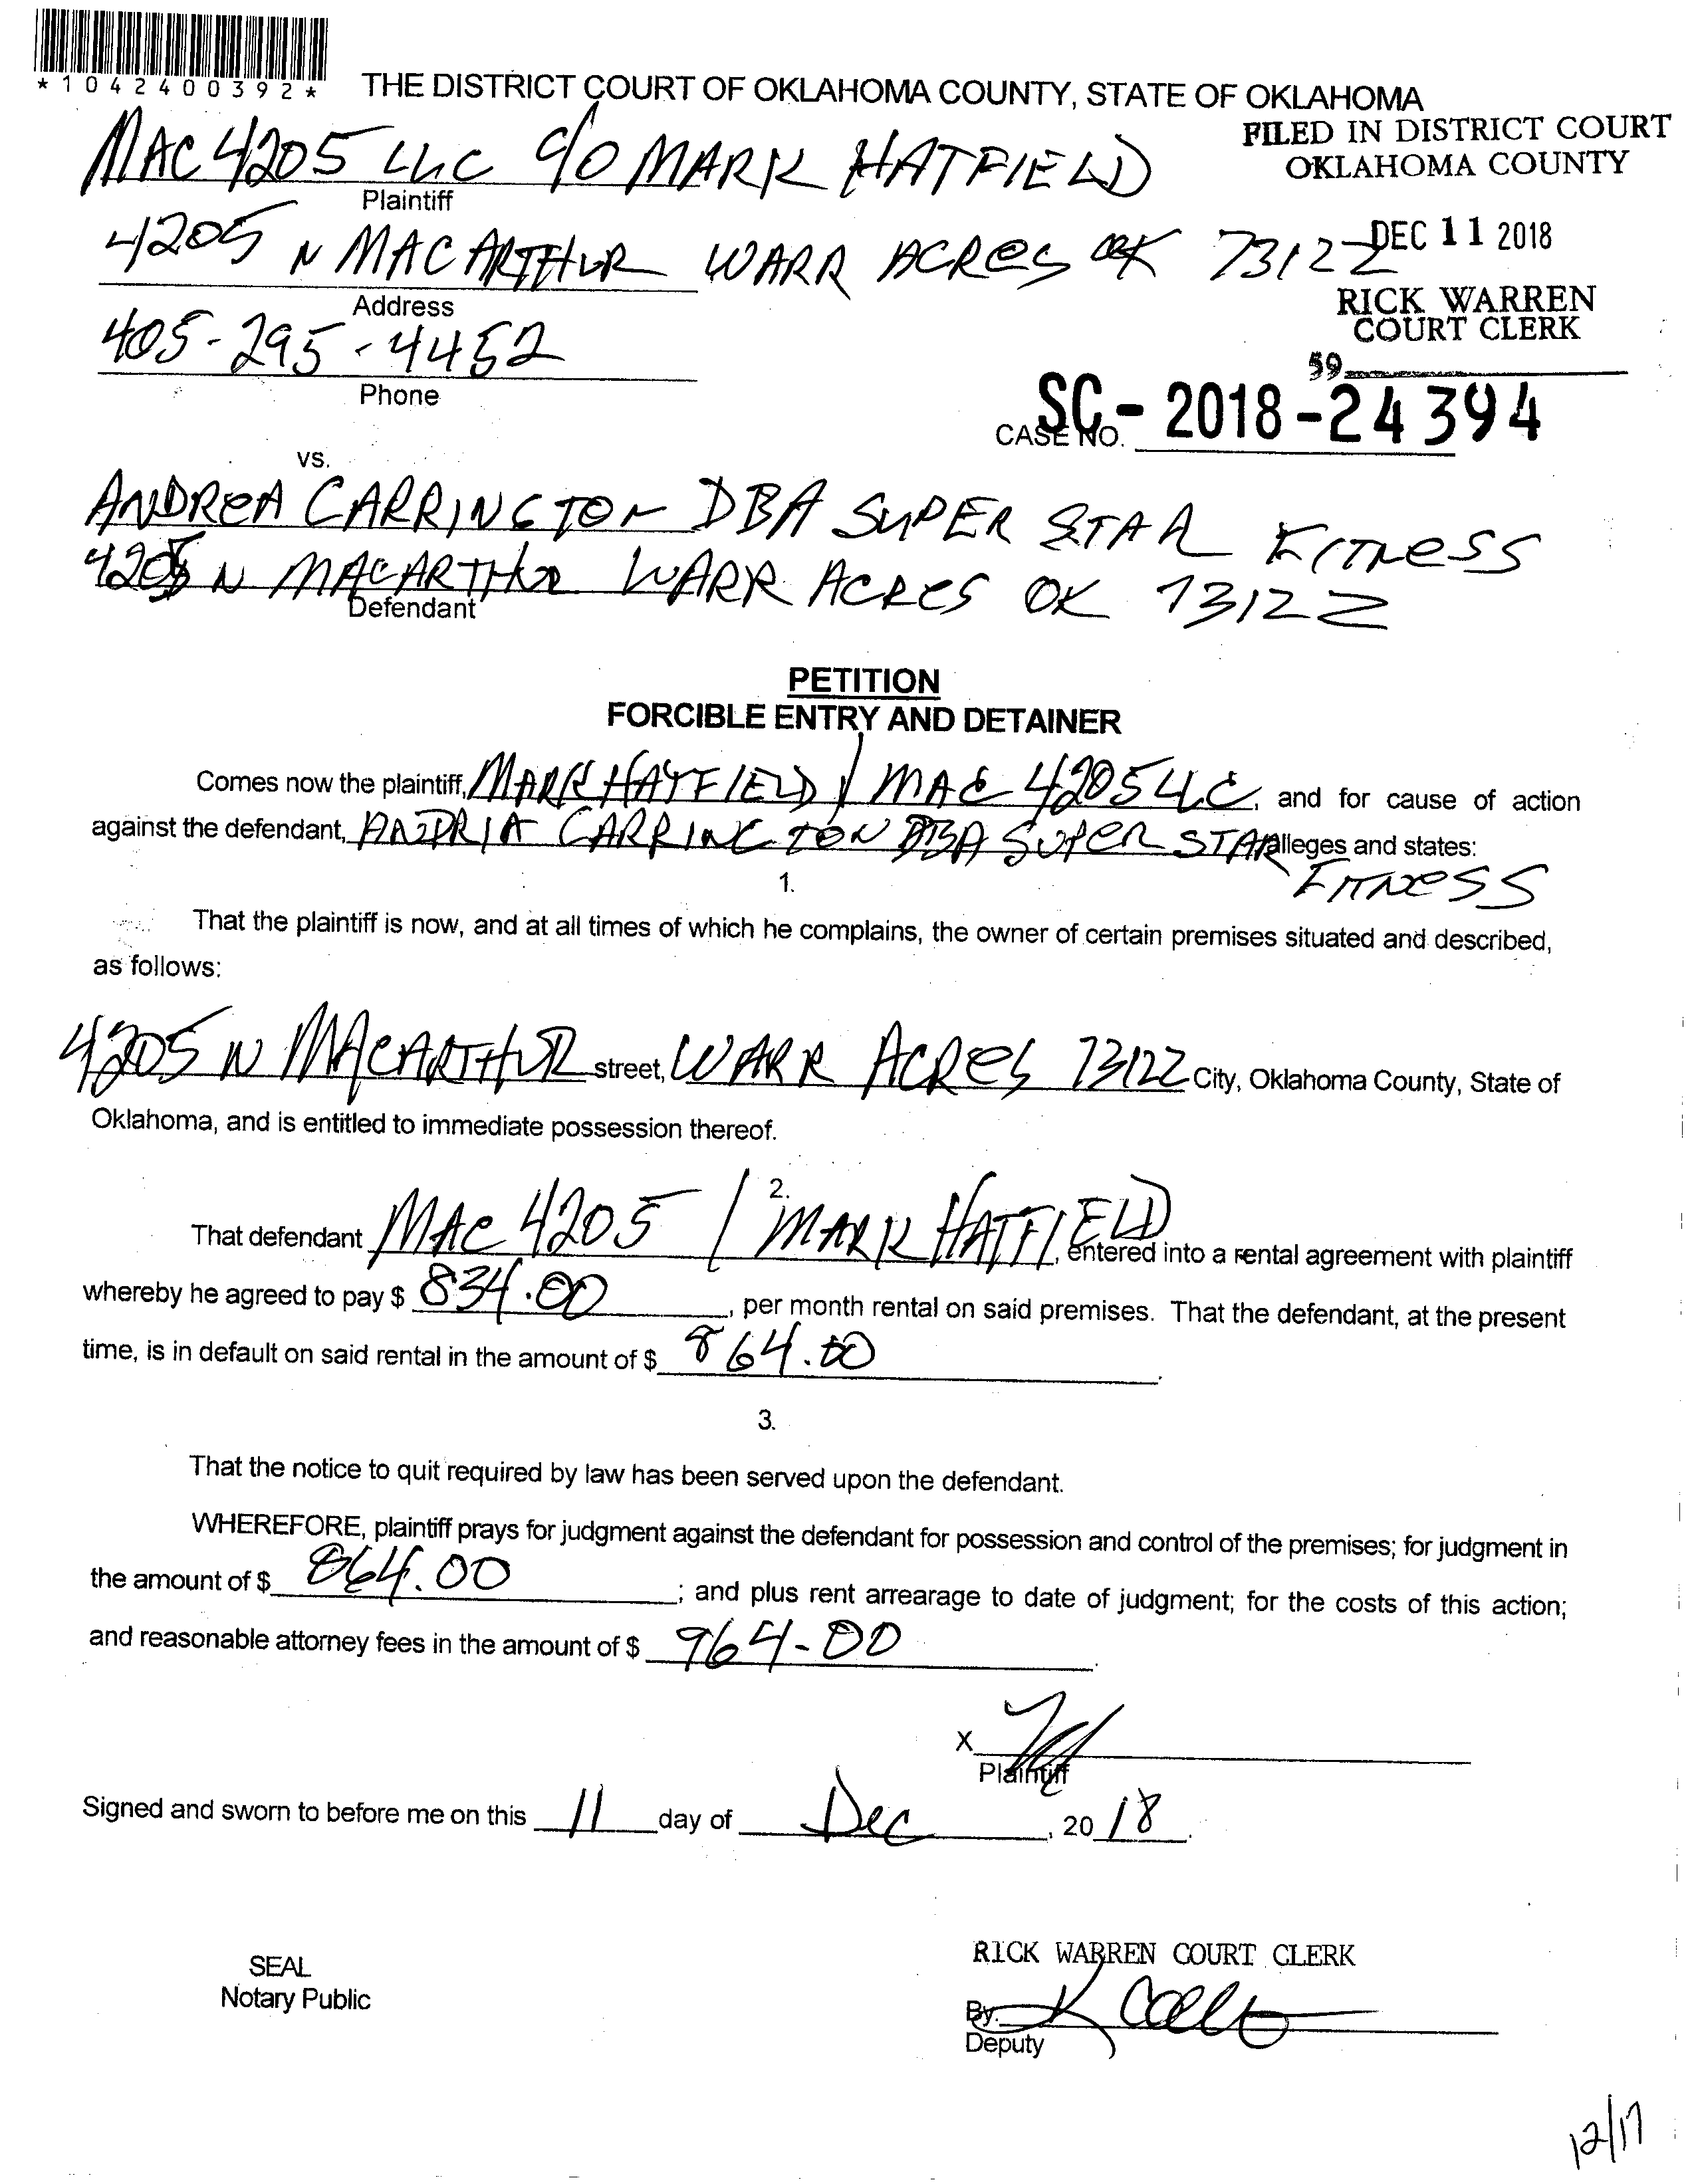 *1042400392*
THE DISTRICT COURT OF OKLAHOMA COUNTY, STATE OF OKLAHOMA
FILED IN DISTRICT COURT
OKLAHOMA COUNTY
MAC 4205 LLC C/O MARK HATFIELD
Plaintiff
4205 N MACARTHUR WARR ACRES OK 73122
DEC 11 2018
Address
RICK WARREN
COURT CLERK
405-295-4452
59
Phone
CASE NO. SC-2018-24394
vs.
ANDREA CARRINGTON DBA SUPER STAR FITNESS
4205 N MACARTHUR WARR ACRES OK 73122
Defendant
PETITION
FORCIBLE ENTRY AND DETAINER
Comes now the plaintiff, MARK HATFIELD / MAC 4205 LLC, and for cause of action
against the defendant, ANDRIA CARRINGTON DBA SUPER STAR alleges and states:
FITNESS
1.
That the plaintiff is now, and at all times of which he complains, the owner of certain premises situated and described,
as follows:
4205 N MACARTHUR street, WARR ACRES 73122 City, Oklahoma County, State of
Oklahoma, and is entitled to immediate possession thereof.
2.
That defendant MAC 4205 / MARK HATFIELD, entered into a rental agreement with plaintiff
whereby he agreed to pay $ 834.00, per month rental on said premises. That the defendant, at the present
time, is in default on said rental in the amount of $ 864.00.
3.
That the notice to quit required by law has been served upon the defendant.
WHEREFORE, plaintiff prays for judgment against the defendant for possession and control of the premises; for judgment in
the amount of $ 864.00; and plus rent arrearage to date of judgment; for the costs of this action;
and reasonable attorney fees in the amount of $ 964-00.
X
Plaintiff
Signed and sworn to before me on this 11 day of Dec, 2018.
SEAL
Notary Public
RICK WARREN COURT CLERK
By K
Deputy
12/17